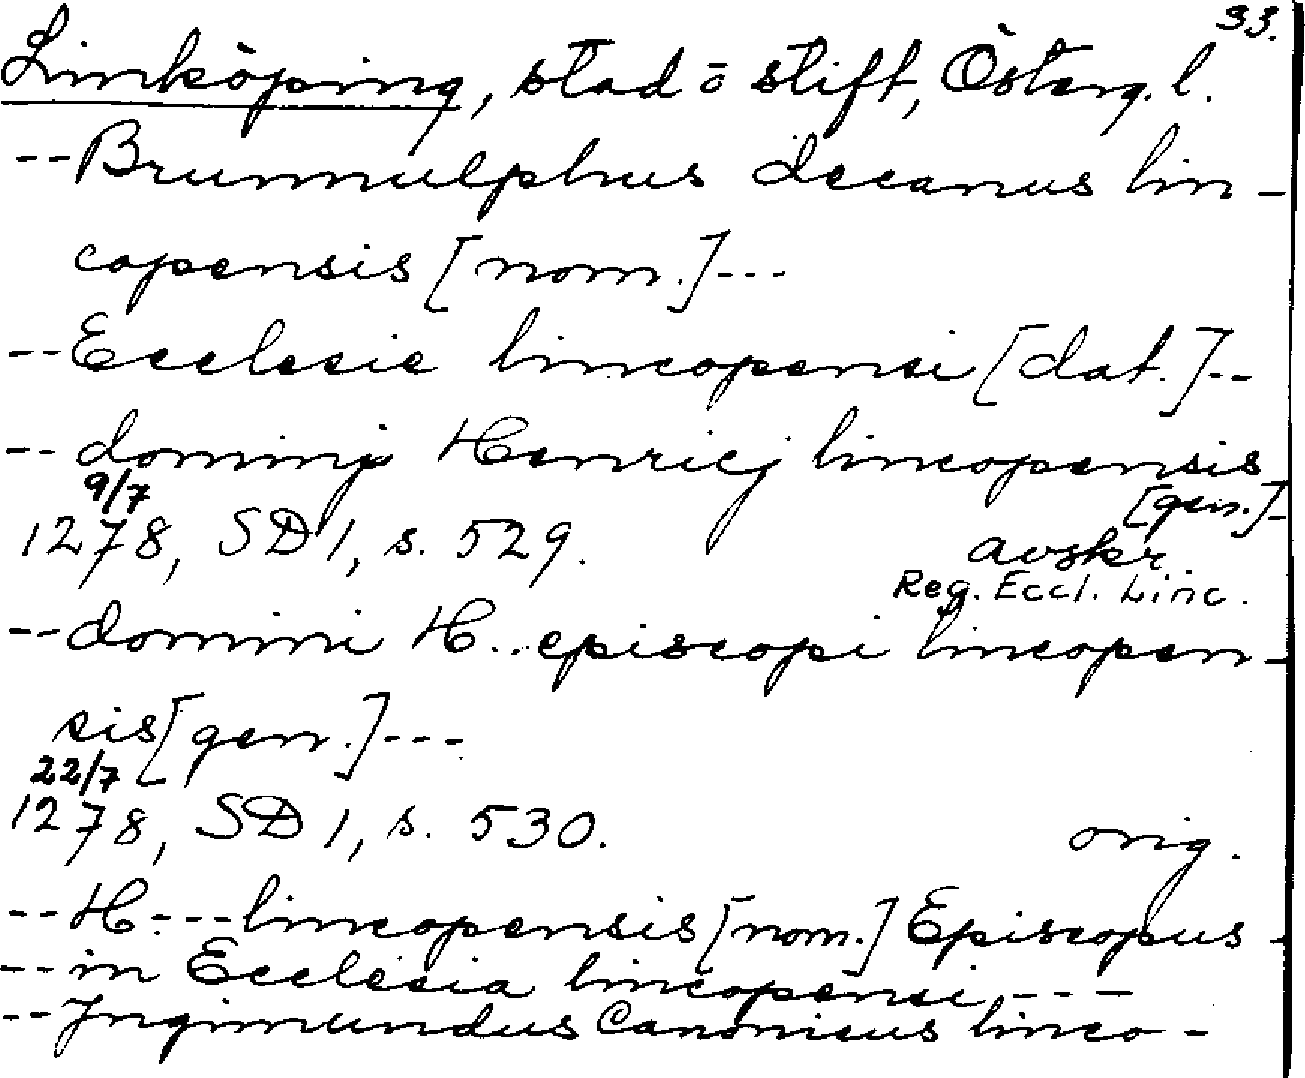 33.
Linköping, stad o stift, Österg. l.
-- Brunnulphus decanus lin-
copensis [nom.] ---
-- Ecclesie lincopensi [dat.] --
-- dominj Henricj lincopensis
[gen.] -
9/7
1278, SD 1, s. 529. avskr
Reg. Eccl. Linc.
-- domini H... episcopi lincopen-
sis [gen.] ---
22/7
1278, SD 1, s. 530. orig.
-- H. --- lincopensis [nom.] Episcopus -
-- in Ecclesia lincopensi ---
-- Jngimundus Canonicus linco-